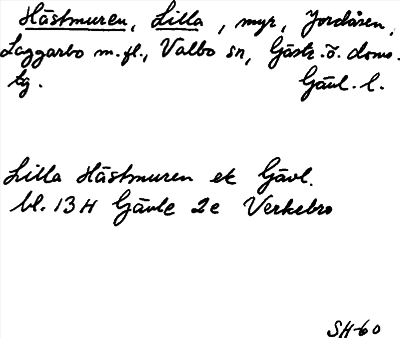 Hästmuren, Lilla, myr, Jordåsen,
Laggarbo m.fl., Valbo sn, Gästr. ö. doms.
tg. Gävl. l.
Lilla Hästmuren ek Gävl.
bl. 13 H Gävle 2e Verkebro
SH-60